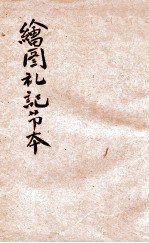 繪圖礼記节本